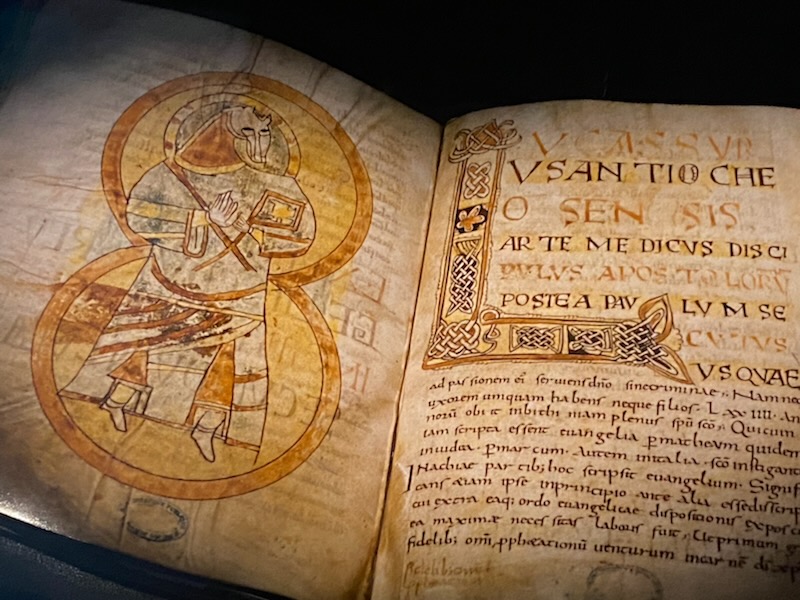 UCAS SYR
USANTIOCHE
O SEN SIS
ARTE MEDICUS DISCI
PULUS APOSTOLORU
POSTEA PAU LUM SE
CUTUS
USQUAE
ad passionem ei seruiens dno, sinecrimine, Nam neq
uxorem umquam habens neque filios. LXXIIII. An
norū obiit inbithiniam plenus spū scō, Qui cum
iam scripta essent euangelia p matheum quidem
iniudea. p marcum. Autem initalia. scō instigante
INachiae partib; hoc scripsit euangelium. Signifi
cans etiam ipse inprincipio ante alia esse discrip
cui extra ea q; ordo euangelicae dispositionis exposc
ea maxime necessitas laboris fuit, Ut primum g
fidelib; omi, pphetationū uenturum incarnē dī xp